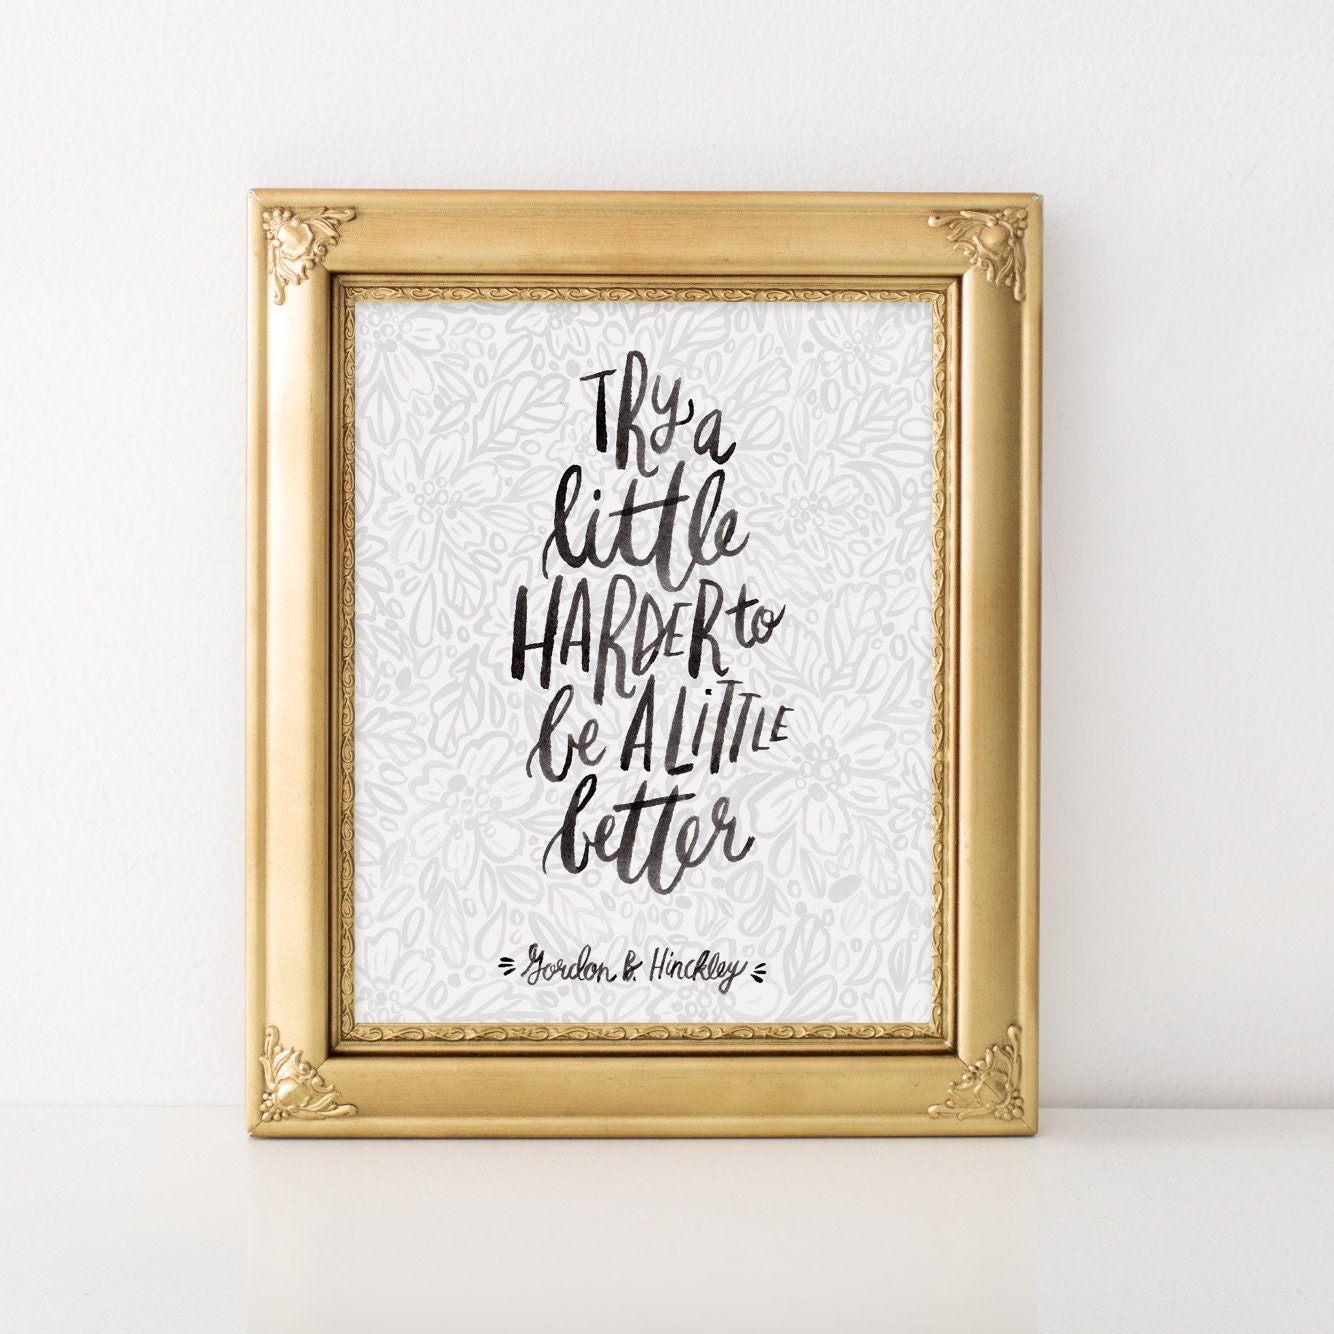 Try a
little
HARDER to
be A LiTTLE
better
Gordon B. Hinckley